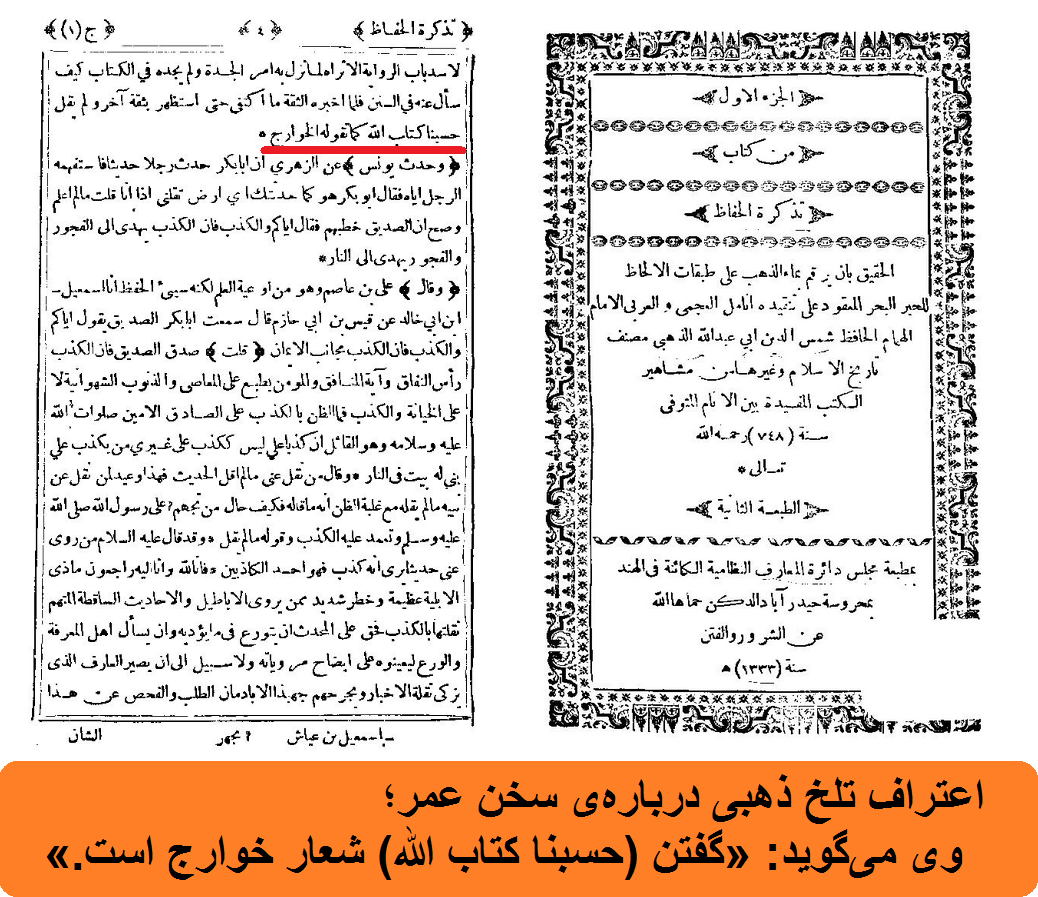 ﴿ تذكرة الحفاظ ﴾ ﴿ ٤ ﴾ ﴿ ج (١) ﴾
لا سد باب الرواية الا تراه لما نزل به امر الجدة ولم يجده في الكتاب كيف
سأل عنه في السنن فلما اخبره الثقة ما اكتفى حتى استظهر بثقة آخر ولم يقل
حسبنا كتاب الله كما تقوله الخوارج *
﴿ وحدث يونس ﴾ عن الزهري ان ابابكر حدث رجلا حديثا فاستفهمه
الرجل اياه فقال ابو بكر هو كما حدثتك اي ارض تقلني اذا انا قلت مالم اعلم
وصح ان الصديق خطبهم فقال اياكم والكذب فان الكذب يهدى الى الفجور
والفجور يهدى الى النار *
﴿ وقال ﴾ على بن عاصم وهو من اوعية العلم لكنه سيئ الحفظ انا اسمعيل ــ
ابن ابي خالد عن قيس بن ابي حازم قال سمعت ابابكر الصديق يقول اياكم
والكذب فان الكذب مجانب الايمان ﴿ قلت ﴾ صدق الصديق فان الكذب
رأس النفاق وآية المنافق والمومن يطبع على المعاصى والذنوب الشهوانية لا
على الخيانة والكذب فما الظن بالكذب على الصادق الامين صلوات الله
عليه وسلامه وهو القائل ان كذبا علي ليس ككذب على غيري من يكذب علي
بني له بيت فى النار * وقال من نقل عنى مالم اقل الحديث فهذا وعيد لمن نقل عن
نبيه مالم يقله مع غلبة الظن انه ما قاله فكيف حال من تهجم ٢ على رسول الله صلى الله
عليه وسلم وتعمد عليه الكذب وقوله مالم يقل * وقد قال عليه السلام من روى
عنى حديثا يرى انه كذب فهو احد الكاذبين * فانا لله وانا اليه راجعون ماذى
الا بلية عظيمة وخطر شديد ممن يروى الاباطيل والاحاديث الساقطة المتهم
نقلتها بالكذب فحق على المحدث ان يتورع فى ما يؤديه وان يسأل اهل المعرفة
والورع ليعينوه على ايضاح مروياته ولا سبيل الى ان يصير العارف الذى
يزكى نقلة الاخبار ويجرحهم جهبذا الا بادمان الطلب والفحص عن هذا
اسمعيل بن عياش ٢ يجهر الشان
الجزء الاول
من كتاب
تذكرة الحفاظ
الحقيق بان يرقم بماء الذهب على طبقات الالحاظ
للحبر البحر المعقود على تنقيده انامل العجمى و العربى الامام
الهمام الحافظ شمس الدين ابي عبدالله الذهبي مصنف
تاريخ الاسلام وغيرها من مشاهير
الكتب المفيدة بين الانام المتوفى
سنة (٧٤٨) رحمه الله
تعالى *
الطبعة الثانية
بمطبعة مجلس دائرة المعارف النظامية الكائنة فى الهند
بمحروسة حيدر آباد الدكن حماها الله
عن الشرور والفتن
سنة (١٣٣٣) ه
اعتراف تلخ ذهبی درباره‌ی سخن عمر؛
وی می‌گوید: «گفتن (حسبنا کتاب الله) شعار خوارج است.»